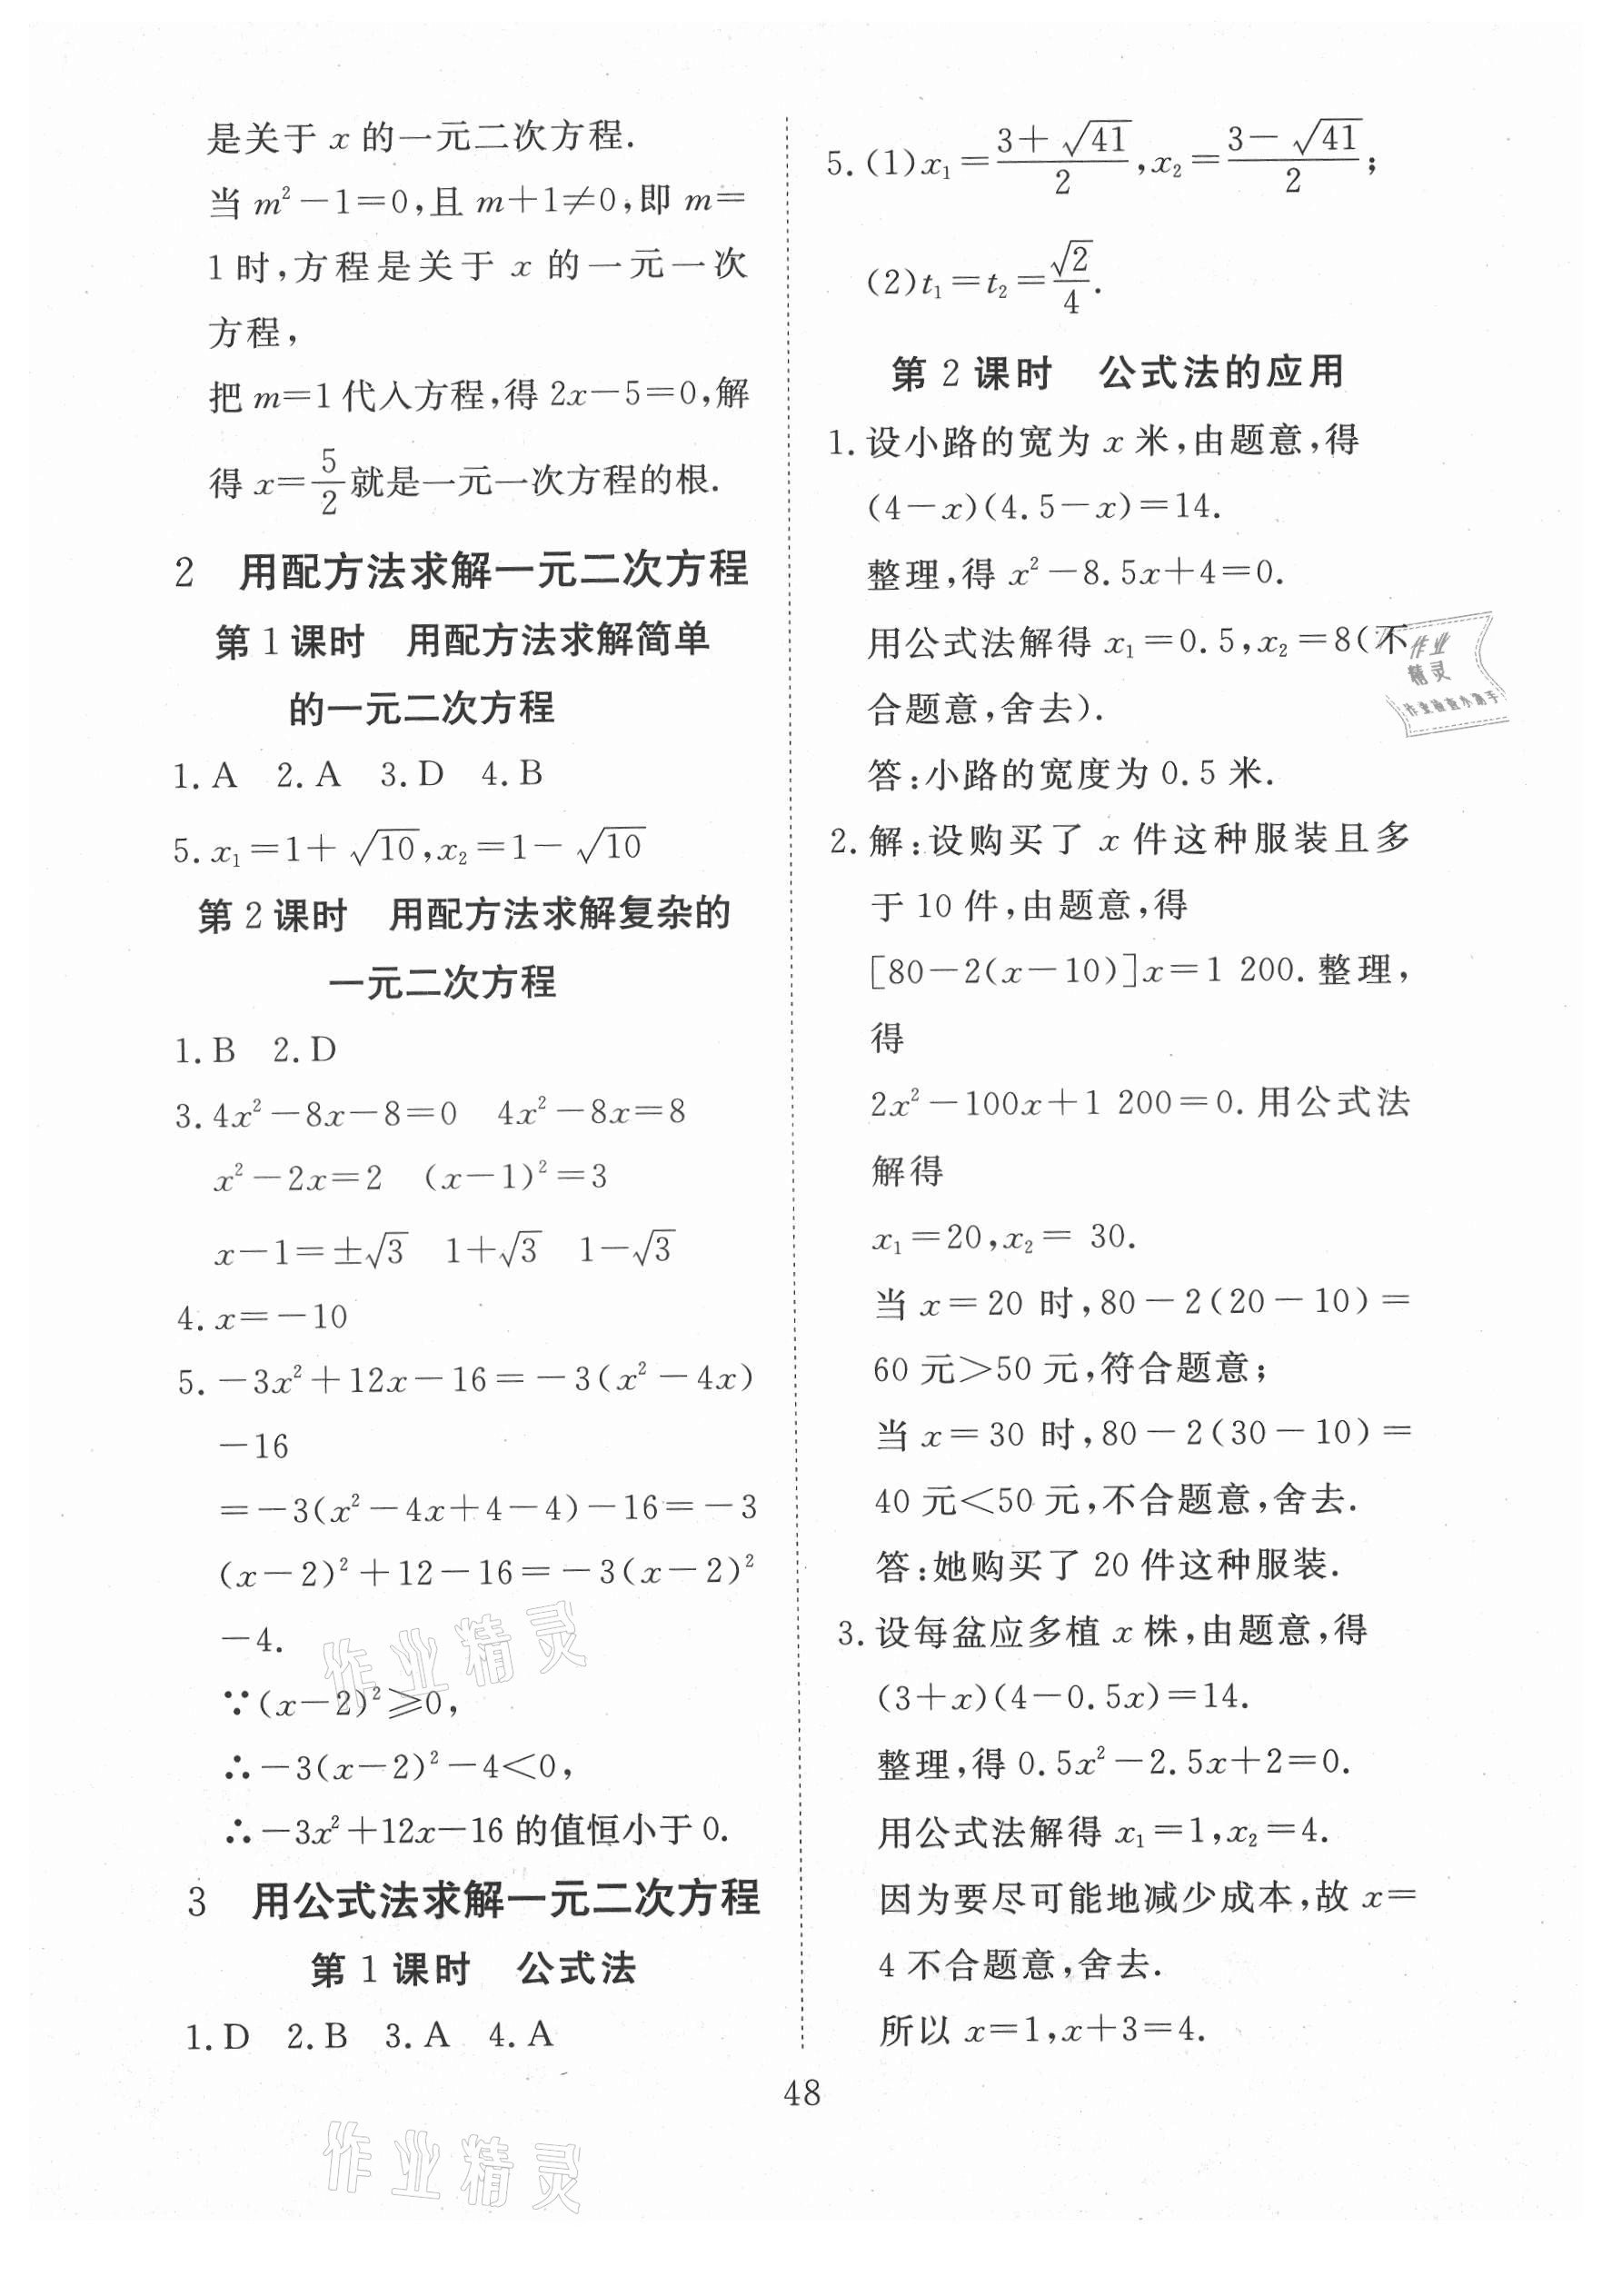 是关于 x 的一元二次方程.
当 m²－1＝0,且 m＋1≠0,即 m＝
1 时,方程是关于 x 的一元一次
方程,
把 m＝1 代人方程,得 2x－5＝0,解
得 x＝5/2 就是一元一次方程的根.
2 用配方法求解一元二次方程
第 1 课时 用配方法求解简单
的一元二次方程
1. A 2. A 3. D 4. B
5. x₁＝1＋√10,x₂＝1－√10
第 2 课时 用配方法求解复杂的
一元二次方程
1. B 2. D
3. 4x²－8x－8＝0 4x²－8x＝8
x²－2x＝2 (x－1)²＝3
x－1＝±√3 1＋√3 1－√3
4. x＝－10
5. －3x²＋12x－16＝－3(x²－4x)
－16
＝－3(x²－4x＋4－4)－16＝－3
(x－2)²＋12－16＝－3(x－2)²
－4.
∵(x－2)²≥0,
∴－3(x－2)²－4＜0,
∴－3x²＋12x－16 的值恒小于 0.
3 用公式法求解一元二次方程
第 1 课时 公式法
1. D 2. B 3. A 4. A
5. (1)x₁＝(3＋√41)/2,x₂＝(3－√41)/2;
(2)t₁＝t₂＝√2/4.
第 2 课时 公式法的应用
1. 设小路的宽为 x 米,由题意,得
(4－x)(4.5－x)＝14.
整理,得 x²－8.5x＋4＝0.
用公式法解得 x₁＝0.5,x₂＝8(不
合题意,舍去).
答:小路的宽度为 0.5 米.
2. 解:设购买了 x 件这种服装且多
于 10 件,由题意,得
[80－2(x－10)]x＝1 200. 整理,
得
2x²－100x＋1 200＝0. 用公式法
解得
x₁＝20,x₂＝ 30.
当 x＝20 时,80－2(20－10)＝
60 元＞50 元,符合题意;
当 x＝30 时,80－2(30－10)＝
40 元＜50 元,不合题意,舍去.
答:她购买了 20 件这种服装.
3. 设每盆应多植 x 株,由题意,得
(3＋x)(4－0.5x)＝14.
整理,得 0.5x²－2.5x＋2＝0.
用公式法解得 x₁＝1,x₂＝4.
因为要尽可能地减少成本,故 x＝
4 不合题意,舍去.
所以 x＝1,x＋3＝4.
48
作业
精灵
作业检查小助手
作业精灵
作业精灵